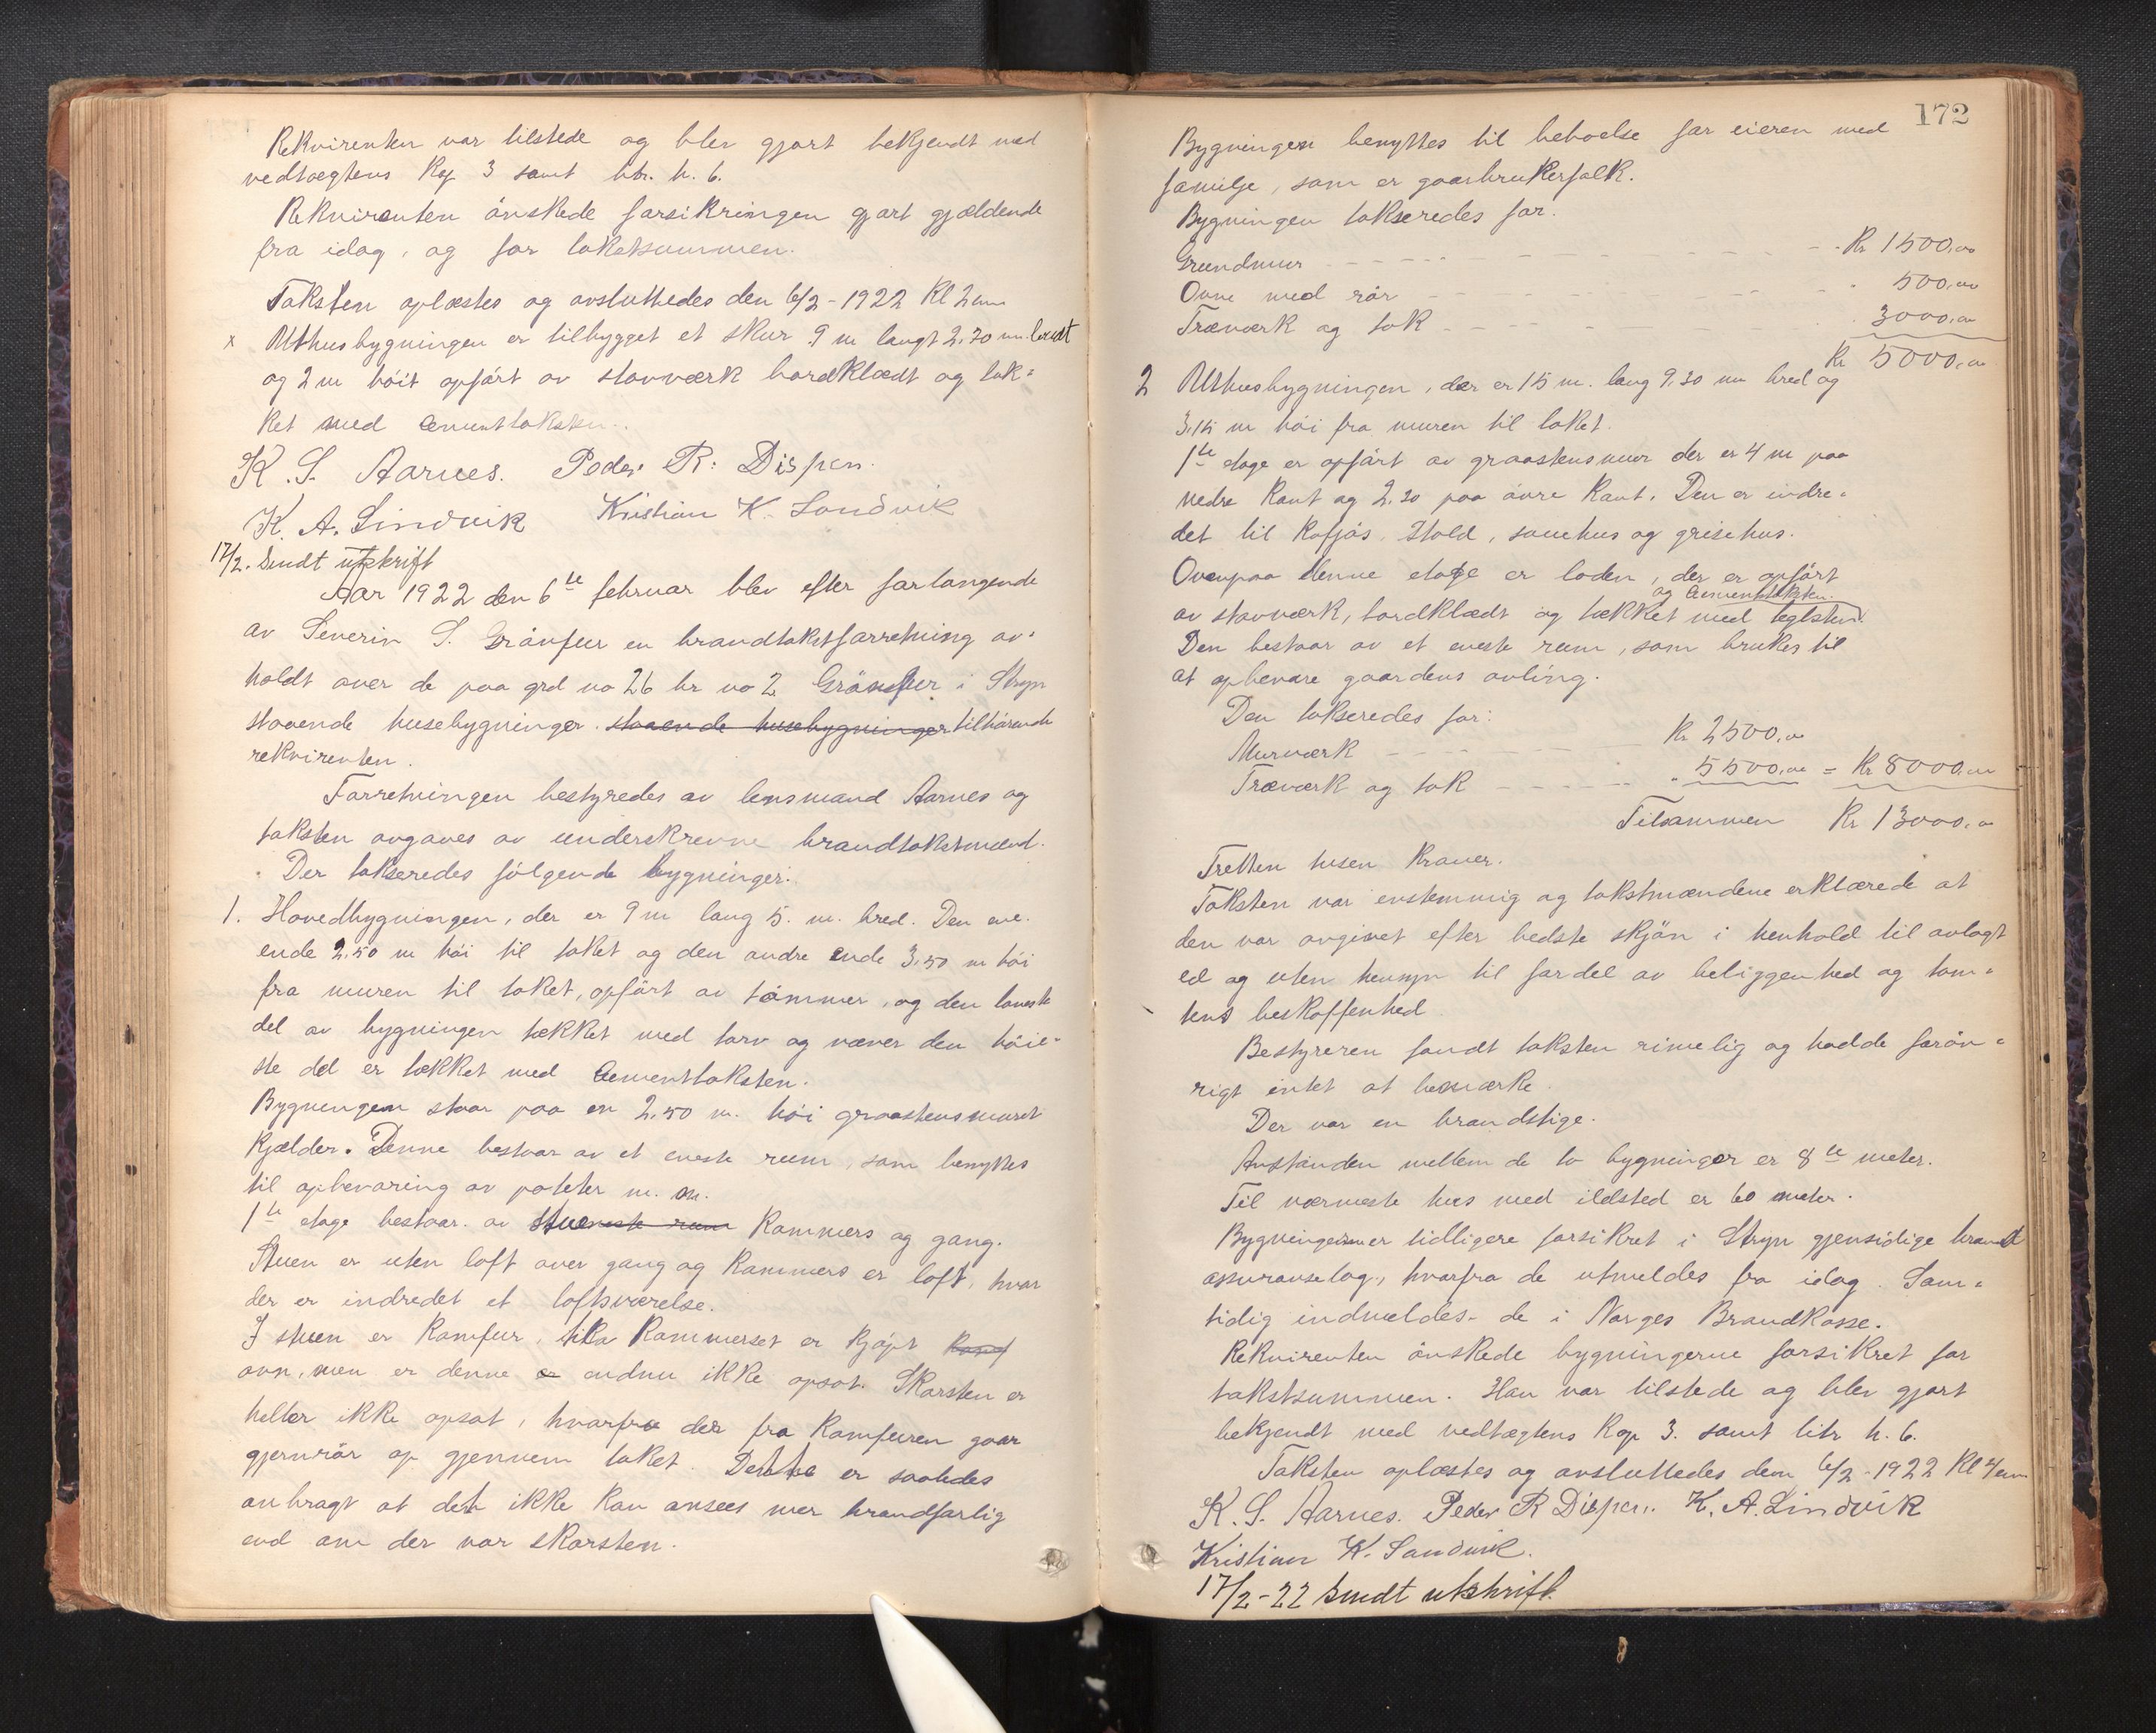 Rekvirenten var tilstede og blev gjort bekjendt med
vedtægtens Kap 3 samt litr. h. 6.
Rekvirenten önskede forsikringen gjort gjældende
fra idag, og for takstsummen.
Taksten oplæstes og avsluttedes den 6/2-1922 Kl 2 em
x Uthusbygningen er tilbygget et skur 9 m langt 2.70 m. bredt
og 2 m höit opfört av stavværk bordklædt og tæk=
ket med cementtaksten.
K. S. Aarnes. Peder R. Dispen.
K. A. Lindvik Kristian K. Sandvik
17/2. Sendt utskrift
Aar 1922 den 6te februar blev efter forlangende
av Severin S. Grönfur en brandtakstforretning av=
holdt over de paa grd no 26 br no 2 Grönfur i Stryn
staaende husebygninger. staaende husebygninger tilhörende
rekvirenten.
Forretningen bestyredes av lensmand Aarnes og
taksten avgaves av underskrevne brandtakstmænd.
Der takseredes fölgende bygninger:
1. Hovedbygningen, der er 9 m lang 5. m. bred. Den ene
ende 2.50 m höi til taket og den andre ende 3.50 m höi
fra muren til taket, opfört av tömmer, og den laveste
del av bygningen tækket med torv og næver den höie=
ste del er tækket med Cementtaksten.
Bygningen staar paa en 2.50 m. höi graastensmuret
Kjælder. Denne bestaar av et eneste rum, som benyttes
til opbevaring av poteter m. m.
1te etage bestaar av Stue Kammers og gang.
Stuen er uten loft over gang og Kammers er loft, hvor
der er indredet et loftsværelse.
I stuen er Komfur, til Kammerset er kjöpt
ovn, men er denne endnu ikke opsat. Skorsten er
heller ikke opsat, hvorfra der fra Komfuren gaar
gjernrör op gjennem taket. Dette er saaledes
anbragt at det ikke kan ansees mer brandfarlig
end om der var skorsten.
172
Bygningen benyttes til beboelse for eieren med
familje, som er gaarbrukerfolk.
Bygningen takseredes for:
Grundmur Kr 1500,00
Ovne med rör 500,00
Træværk og tak 3000,00
Kr 5000,00
2 Uthusbygningen, der er 15 m. lang 9.30 m bred og
3.15 m höi fra muren til taket.
1te etage er opfört av graastensmur der er 4 m paa
nedre Kant og 2.20 paa övre Kant. Den er indre=
det til Kofjös, Stald, sauehus og grisehus.
Ovenpaa denne etage er loden, der er opfört
og Cementtaksten.
av stavværk, bordklædt og tækket med teglsten
Den bestaar av et eneste rum, som brukes til
at opbevare gaardens avling.
Den takseredes for:
Murværk Kr 2500,00
Træværk og tak 5500,00 = Kr 8000,00
Tilsammen Kr 13000,00
Tretten tusen Kroner.
Taksten var enstemmig og takstmændene erklærede at
den var avgivet efter bedste skjön i henhold til avlagt
ed og uten hensyn til fordel av beliggenhed og tom=
tens beskaffenhed.
Bestyreren fandt taksten rimelig og hadde forön=
rigt intet at bemærke.
Der var en brandstige.
Avstanden mellem de to bygninger er 8te meter.
Til nærmeste hus med ildsted er 60 meter.
Bygningerne er tidligere forsikret i Stryn gjensidige brand
assuranselag, hvorfra de utmeldes fra idag. Sam=
tidig indmeldes de i Norges Brandkasse.
Rekvirenten önskede bygningerne forsikret for
takstsummen. Han var tilstede og blev gjort
bekjendt med vedtægtens Kap 3. samt litr h. 6.
Taksten oplæstes og avsluttedes den 6/2-1922 Kl 4 em
K. S. Aarnes. Peder R Dispen. K. A. Lindvik
Kristian K. Sandvik.
17/2-22 Sendt utskrift.